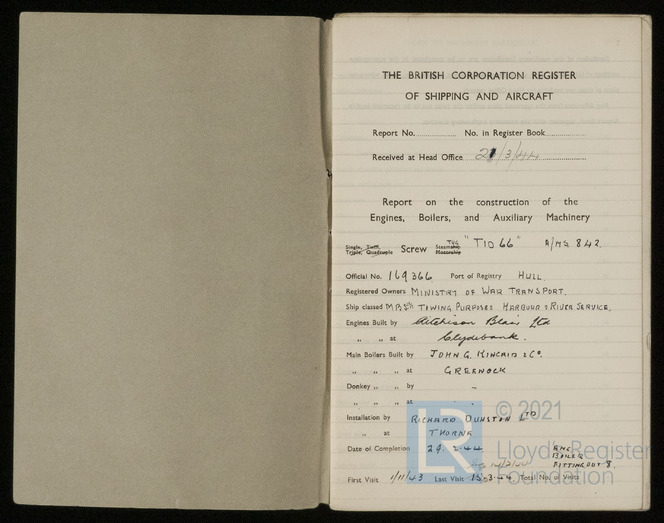 THE BRITISH CORPORATION REGISTER
OF SHIPPING AND AIRCRAFT
Report No. No. in Register Book
Received at Head Office 21/3/44
Report on the construction of the
Engines, Boilers, and Auxiliary Machinery
Single, Twin, Triple, Quadruple Screw Tug Steamship Motorship "TID 66" A/Mg 842.
Official No. 169366 Port of Registry HULL
Registered Owners MINISTRY OF WAR TRANSPORT.
Ship classed MBS* TOWING PURPOSES HARBOUR & RIVER SERVICE.
Engines Built by Aitchison Blair Ltd
„ „ at Clydebank.
Main Boilers Built by JOHN G. KINCAID & Co.
„ „ at GREENOCK
Donkey „ „ by -
„ „ „ at -
Installation by RICHARD DUNSTON LTD
„ at THORNE
Date of Completion 29.2.44 ENG
BOILER
FITTING OUT 8.
First Visit 1/11/43 Last Visit 15-3-44 Total No. of Visits
LR
© 2021
Lloyd's Register
Foundation